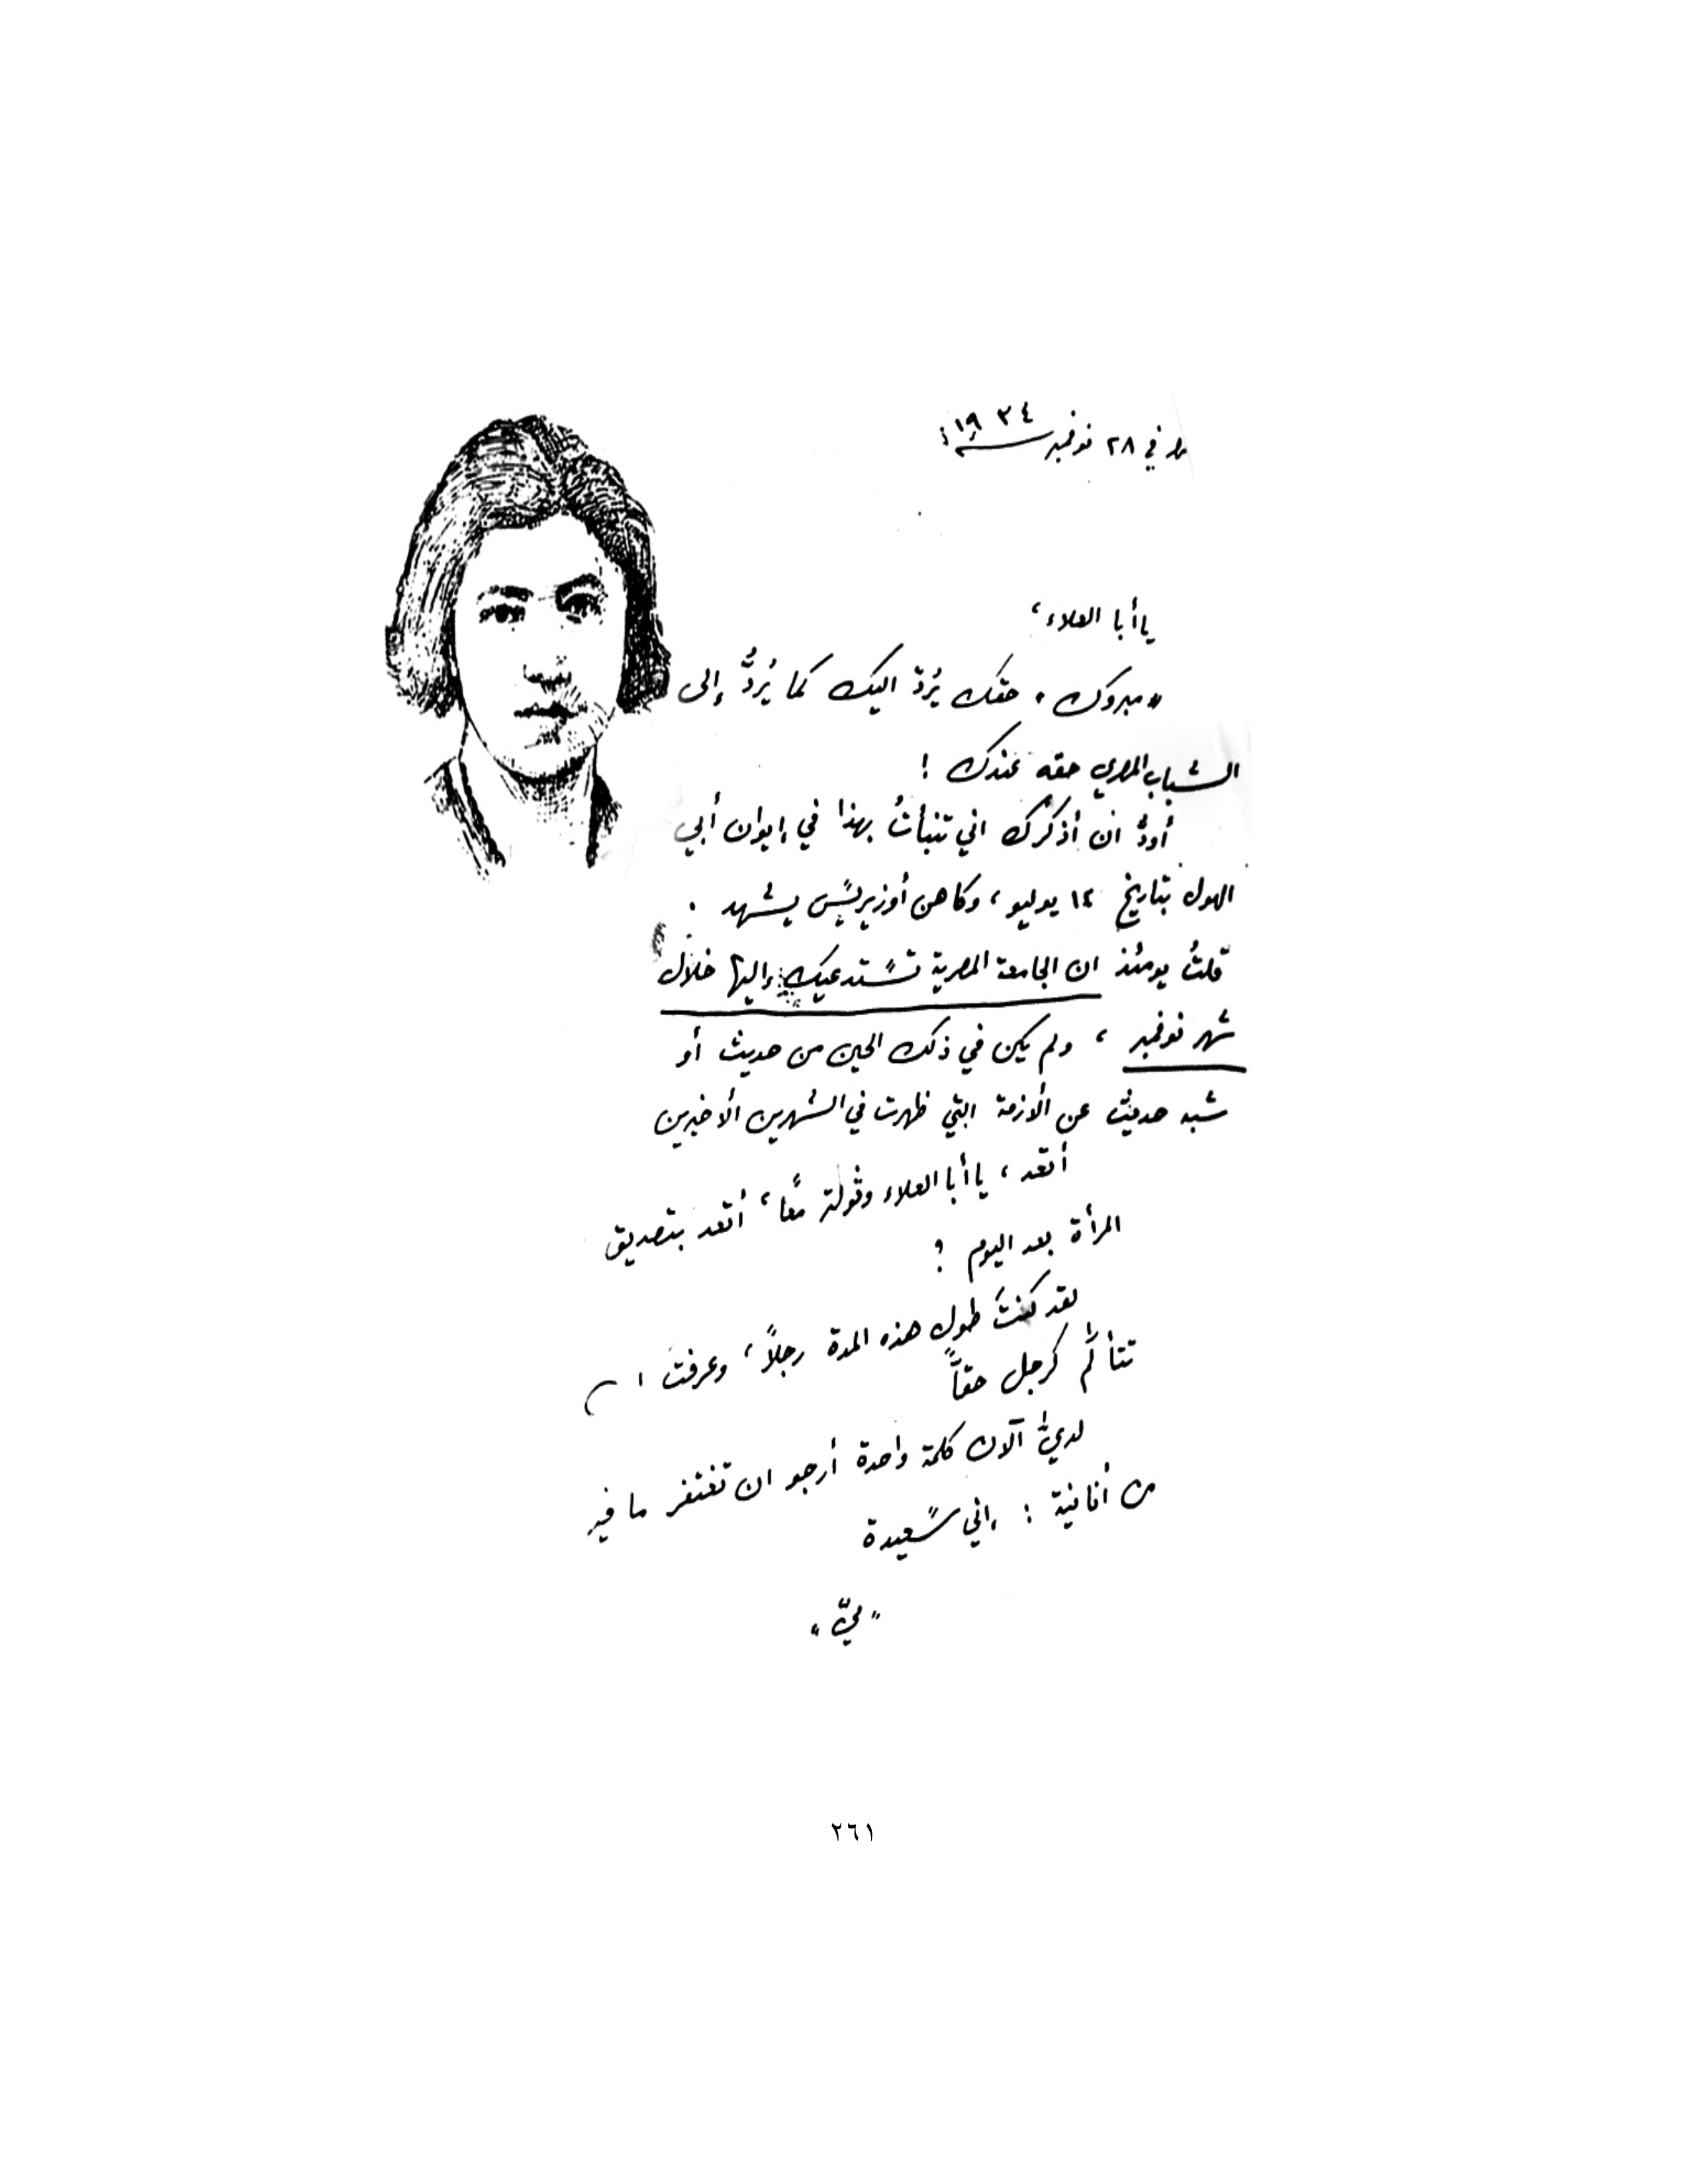 في ٢٨ نوفمبر سنة ١٩٣٤
يا أبا العلاء،
«مبروك» حقك يُردّ اليك كما يُردُّ إلى
الشباب المصري حقه عندك !
أودُّ ان أذكرك اني تنبأتُ بهذا في إيوان أبي
الهول بتاريخ ١٤ يوليو، وكاهن أوزيريس يشهد .
قلتُ يومئذ ان الجامعة المصرية تستدعيك إليها خلال
شهر نوفمبر ، ولم يكن في ذلك الحين من حديث أو
شبه حديث عن الازمة التي ظهرت في الشهرين الاخيرين
أتعد، يا أبا العلاء معًا، أتعد بتصديق
المرأة بعد اليوم ؟
لقد كنتَ طول هذه المدة رجلاً، وعرفت ان
تتألم كرجل حقاً
لديَّ الآن كلمة واحدة أرجو ان تغتفر ما فيه
من أنانية : إني سعيدة
«ميّ»
٢٦١